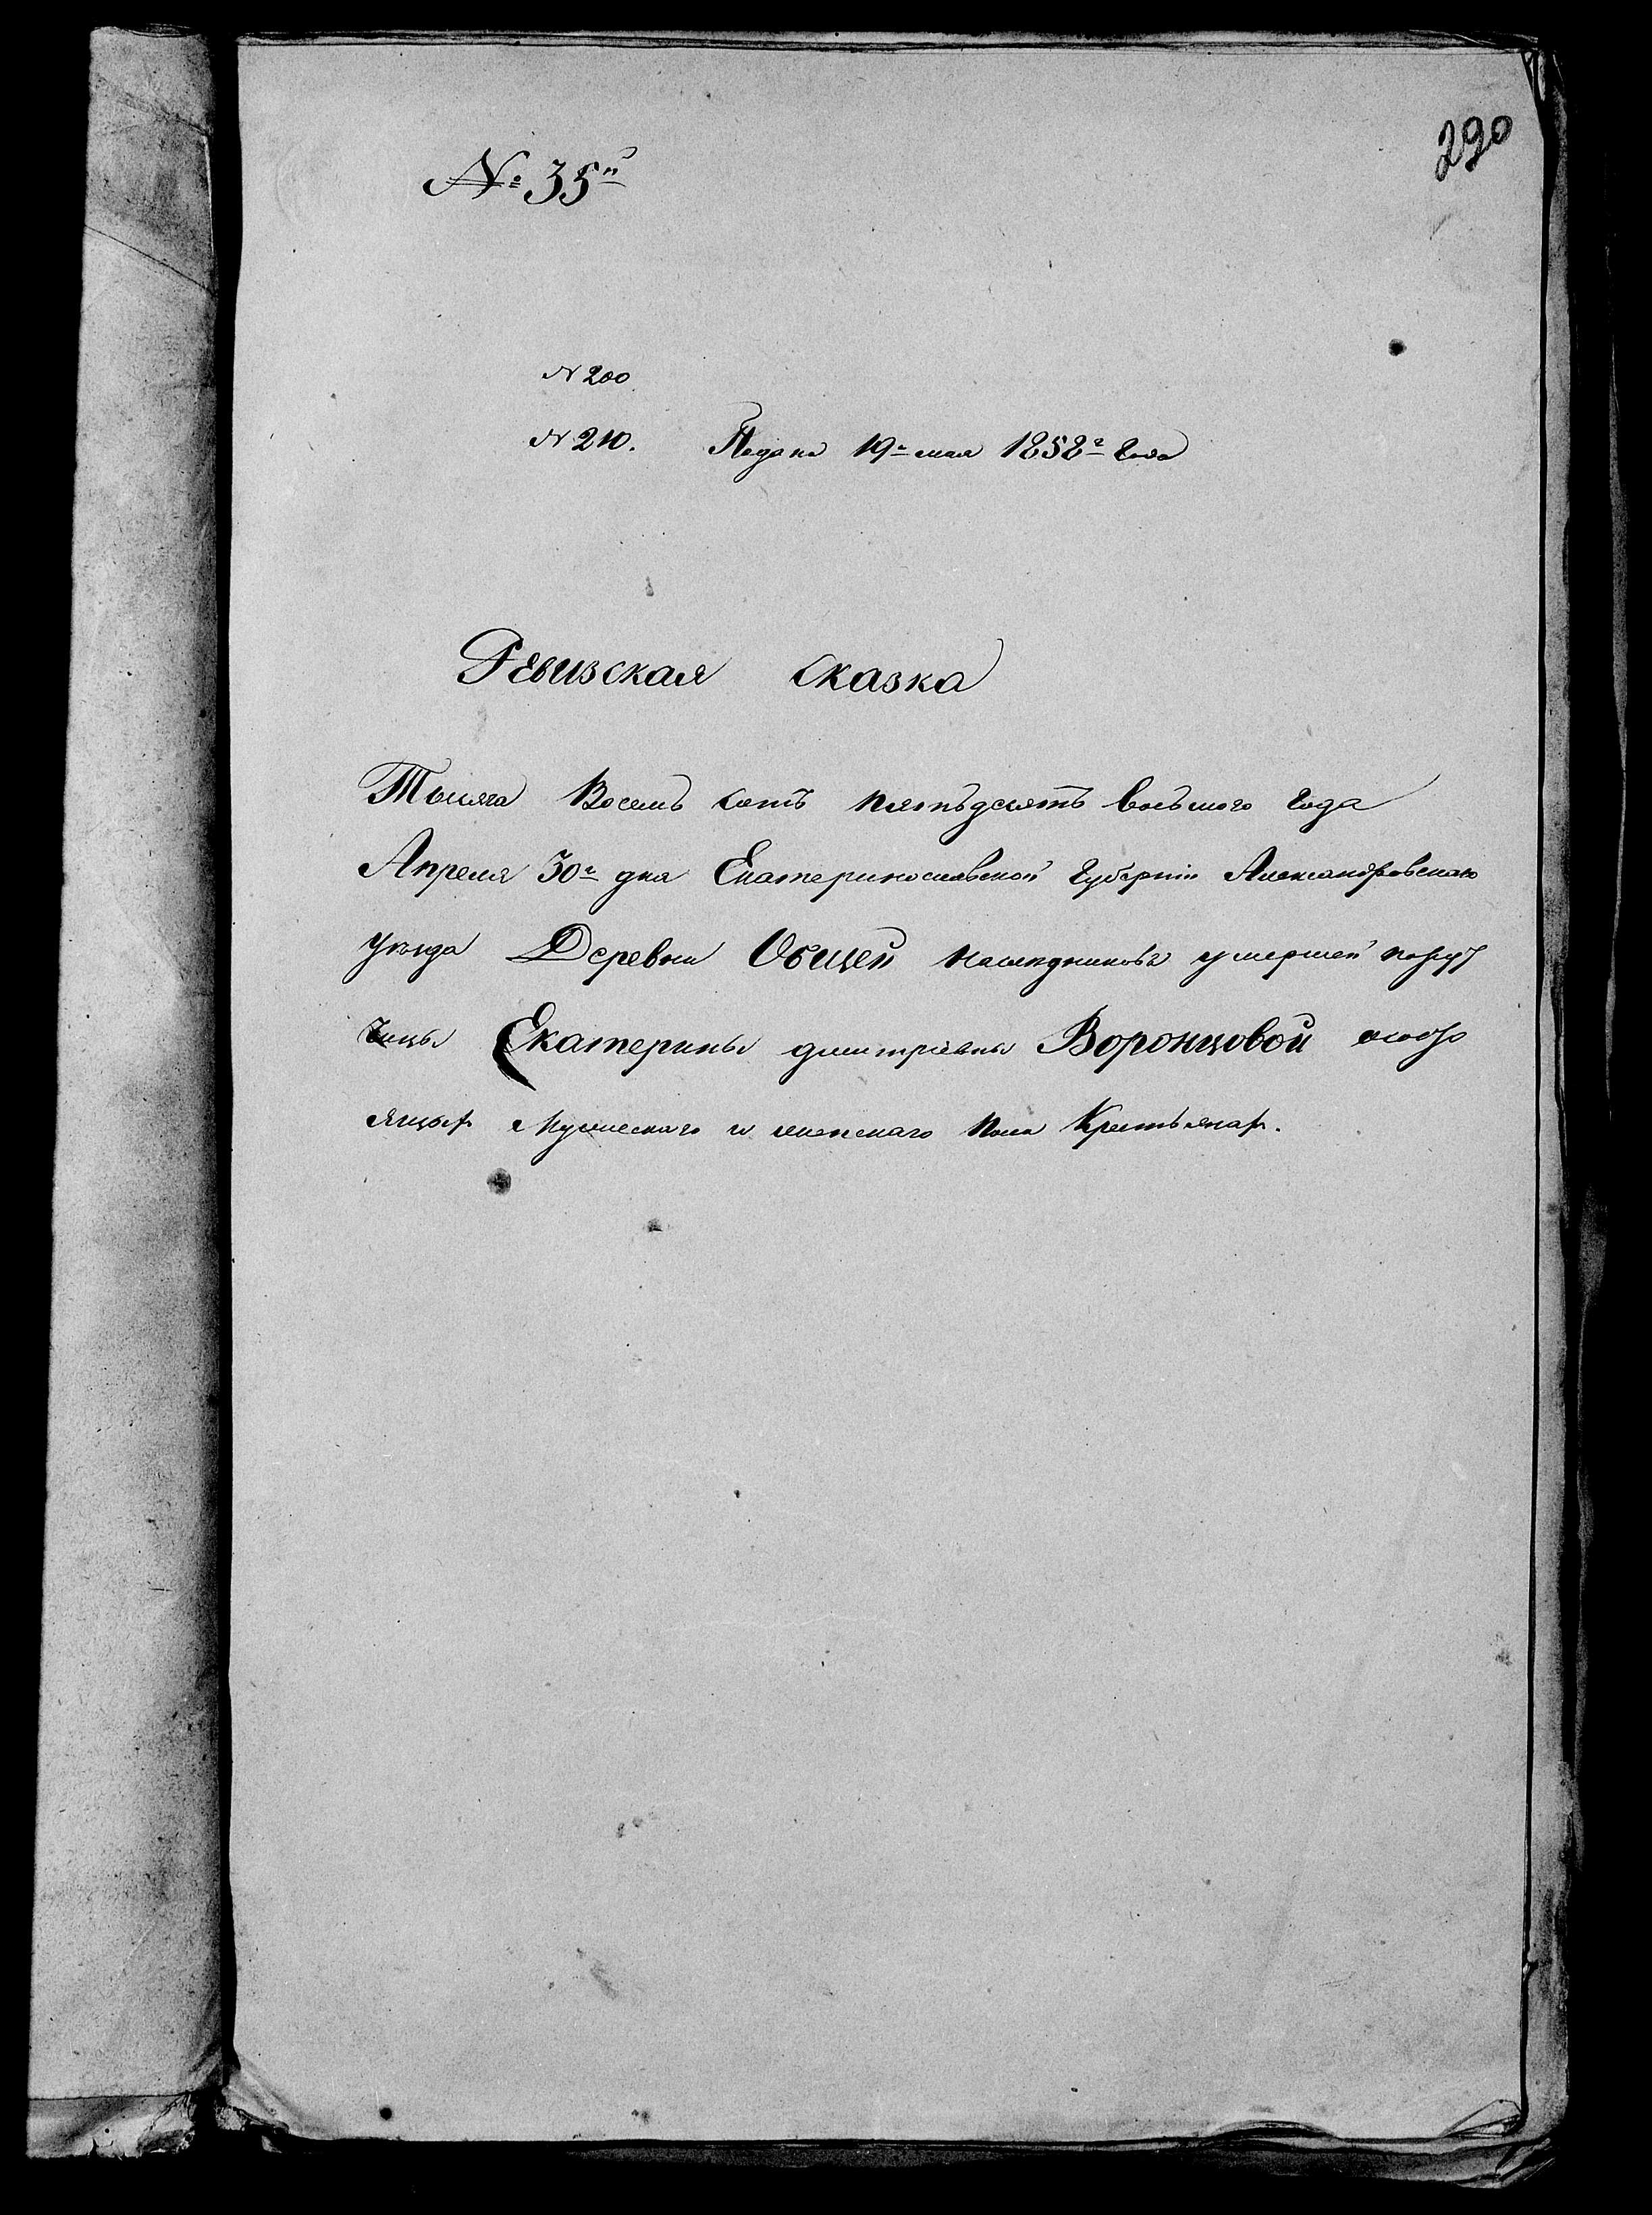 290
№ 35й
N 200.
N 210. Подана 19го мая 1858го года
Ревизская Сказка
Тысяча Восемь сотъ пятьдесятъ восьмого года
Апреля 30го дня Екатеринославской Губернiи Александровскаго
уезда Деревни Общей наследниковъ умершей пору
чицы Екатерины дмитрiевны Воронцовой о состо
ящихъ Мужескаго и женскаго пола Крестьянахъ.